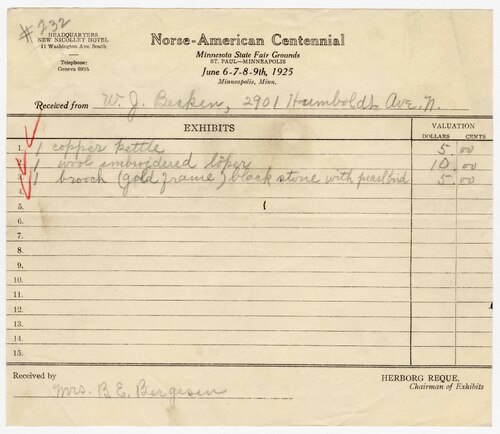 #232
HEADQUARTERS
NEW NICOLLET HOTEL
11 Washington Ave. South
Telephone:
Geneva 6916
Norse-American Centennial
Minnesota State Fair Grounds
ST. PAUL—MINNEAPOLIS
June 6-7-8-9th, 1925
Minneapolis, Minn.
Received from W. J. Besken, 2901 Humboldt Ave. N.
EXHIBITS VALUATION
DOLLARS CENTS
1. 1 copper kettle 5 00
2. 1 wool embroidered töper 10 00
3. 1 brooch (gold frame) black stone with pearl bird 5 00
4.
5.
6.
7.
8.
9.
10.
11.
12.
13.
14.
15.
Received by Mrs. B. E. Bergesen
HERBORG REQUE,
Chairman of Exhibits